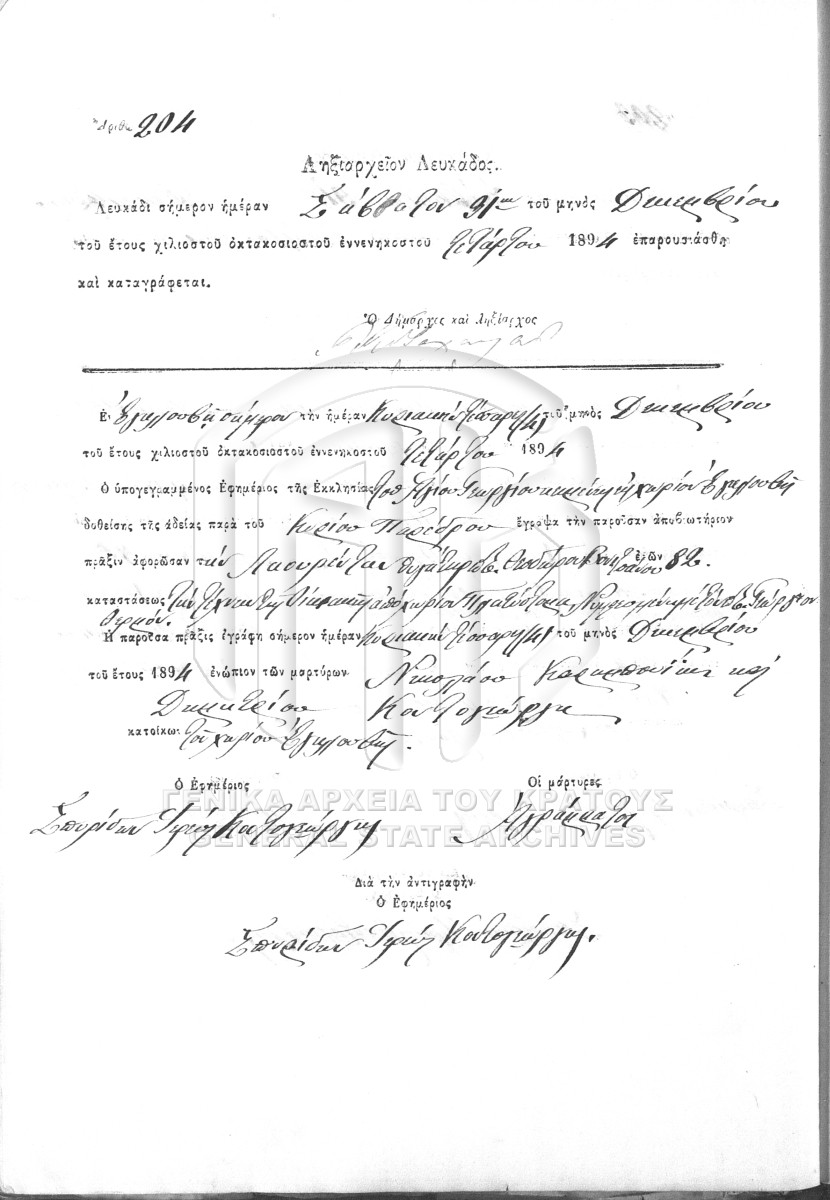 Ἀριθ. 204
Ληξιαρχεῖον Λευκάδος.
Λευκάδι σήμερον ἡμέραν Σάββατον 31ην τοῦ μηνὸς Δεκεμβρίου
τοῦ ἔτους χιλιοστοῦ ὀκτακοσιοστοῦ ἐννενηκοστοῦ τετάρτου 1894 ἐπαρουσιάσθη
καὶ καταγράφεται.
Ὁ Δήμαρχος καὶ Ληξίαρχος
Ἐν Ἐγκλουβῇ σήμερον τὴν ἡμέραν Κυριακὴν τέσσαρη (4) τοῦ μηνὸς Δεκεμβρίου
τοῦ ἔτους χιλιοστοῦ ὀκτακοσιοστοῦ ἐννενηκοστοῦ τετάρτου 1894
Ὁ ὑπογεγραμμένος Ἐφημέριος τῆς Ἐκκλησίας τοῦ Ἁγίου Γεωργίου χωρίον Ἐγκλουβῆ
δοθείσης τῆς ἀδείας παρὰ τοῦ Κυρίου Παρέδρου ἔγραψα τὴν παροῦσαν ἀποβιωτήριον
πρᾶξιν ἀφορῶσαν τὴν Λαουρένταν θυγάτηρ Θεοδώρου ἐτῶν 82.
καταστάσεως Γεώργιον
Θερμόν.
Ἡ παροῦσα πρᾶξις ἐγράφη σήμερον ἡμέραν Κυριακὴν τέσσαρη (4) τοῦ μηνὸς Δεκεμβρίου
τοῦ ἔτους 1894 ἐνώπιον τῶν μαρτύρων Νικολάου καὶ
Δημητρίου Κοντογιώργη
κατοίκων τοῦ χωρίου Ἐγκλουβῆ.
Ὁ Ἐφημέριος Οἱ μάρτυρες
Σπυρίδων Ἱερεὺς Κοντογιώργης Ἀγράμματοι
ΓΕΝΙΚΑ ΑΡΧΕΙΑ ΤΟΥ ΚΡΑΤΟΥΣ
GENERAL STATE ARCHIVES
Διὰ τὴν ἀντιγραφὴν
Ὁ Ἐφημέριος
Σπυρίδων Ἱερεὺς Κοντογιώργης.